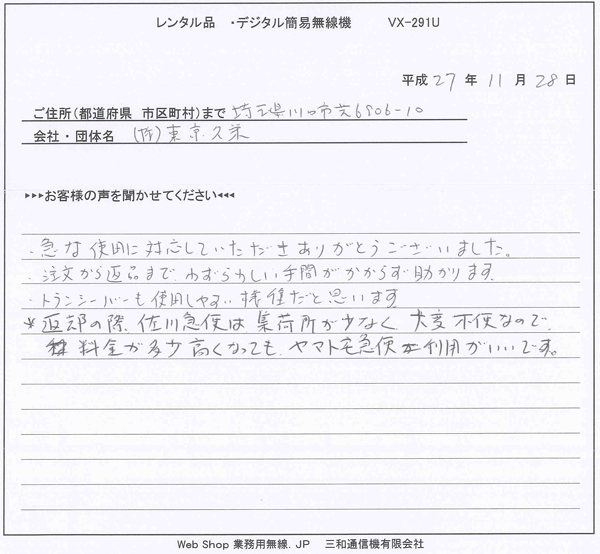 レンタル品 ・デジタル簡易無線機 VX-291U
平成 27 年 11 月 28 日
ご住所(都道府県 市区町村)まで 埼玉県川口市 6906-10
会社・団体名 (有)東京久栄
▸▸▸お客様の声を聞かせてください◂◂◂
・急な使用に対応していただきありがとうございました。
・注文から返品まで、わずらわしい手間がかからず助かります
・トランシーバーも使用しやすい機種だと思います
※返却の際、佐川急便は集荷所が少なく、大変不便なので、
料金が多少高くなっても、ヤマト宅急便利用がいいです。
Web Shop 業務用無線.JP 三和通信機有限会社